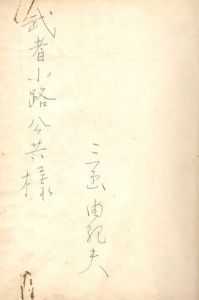 武者小路公共様
三島由紀夫